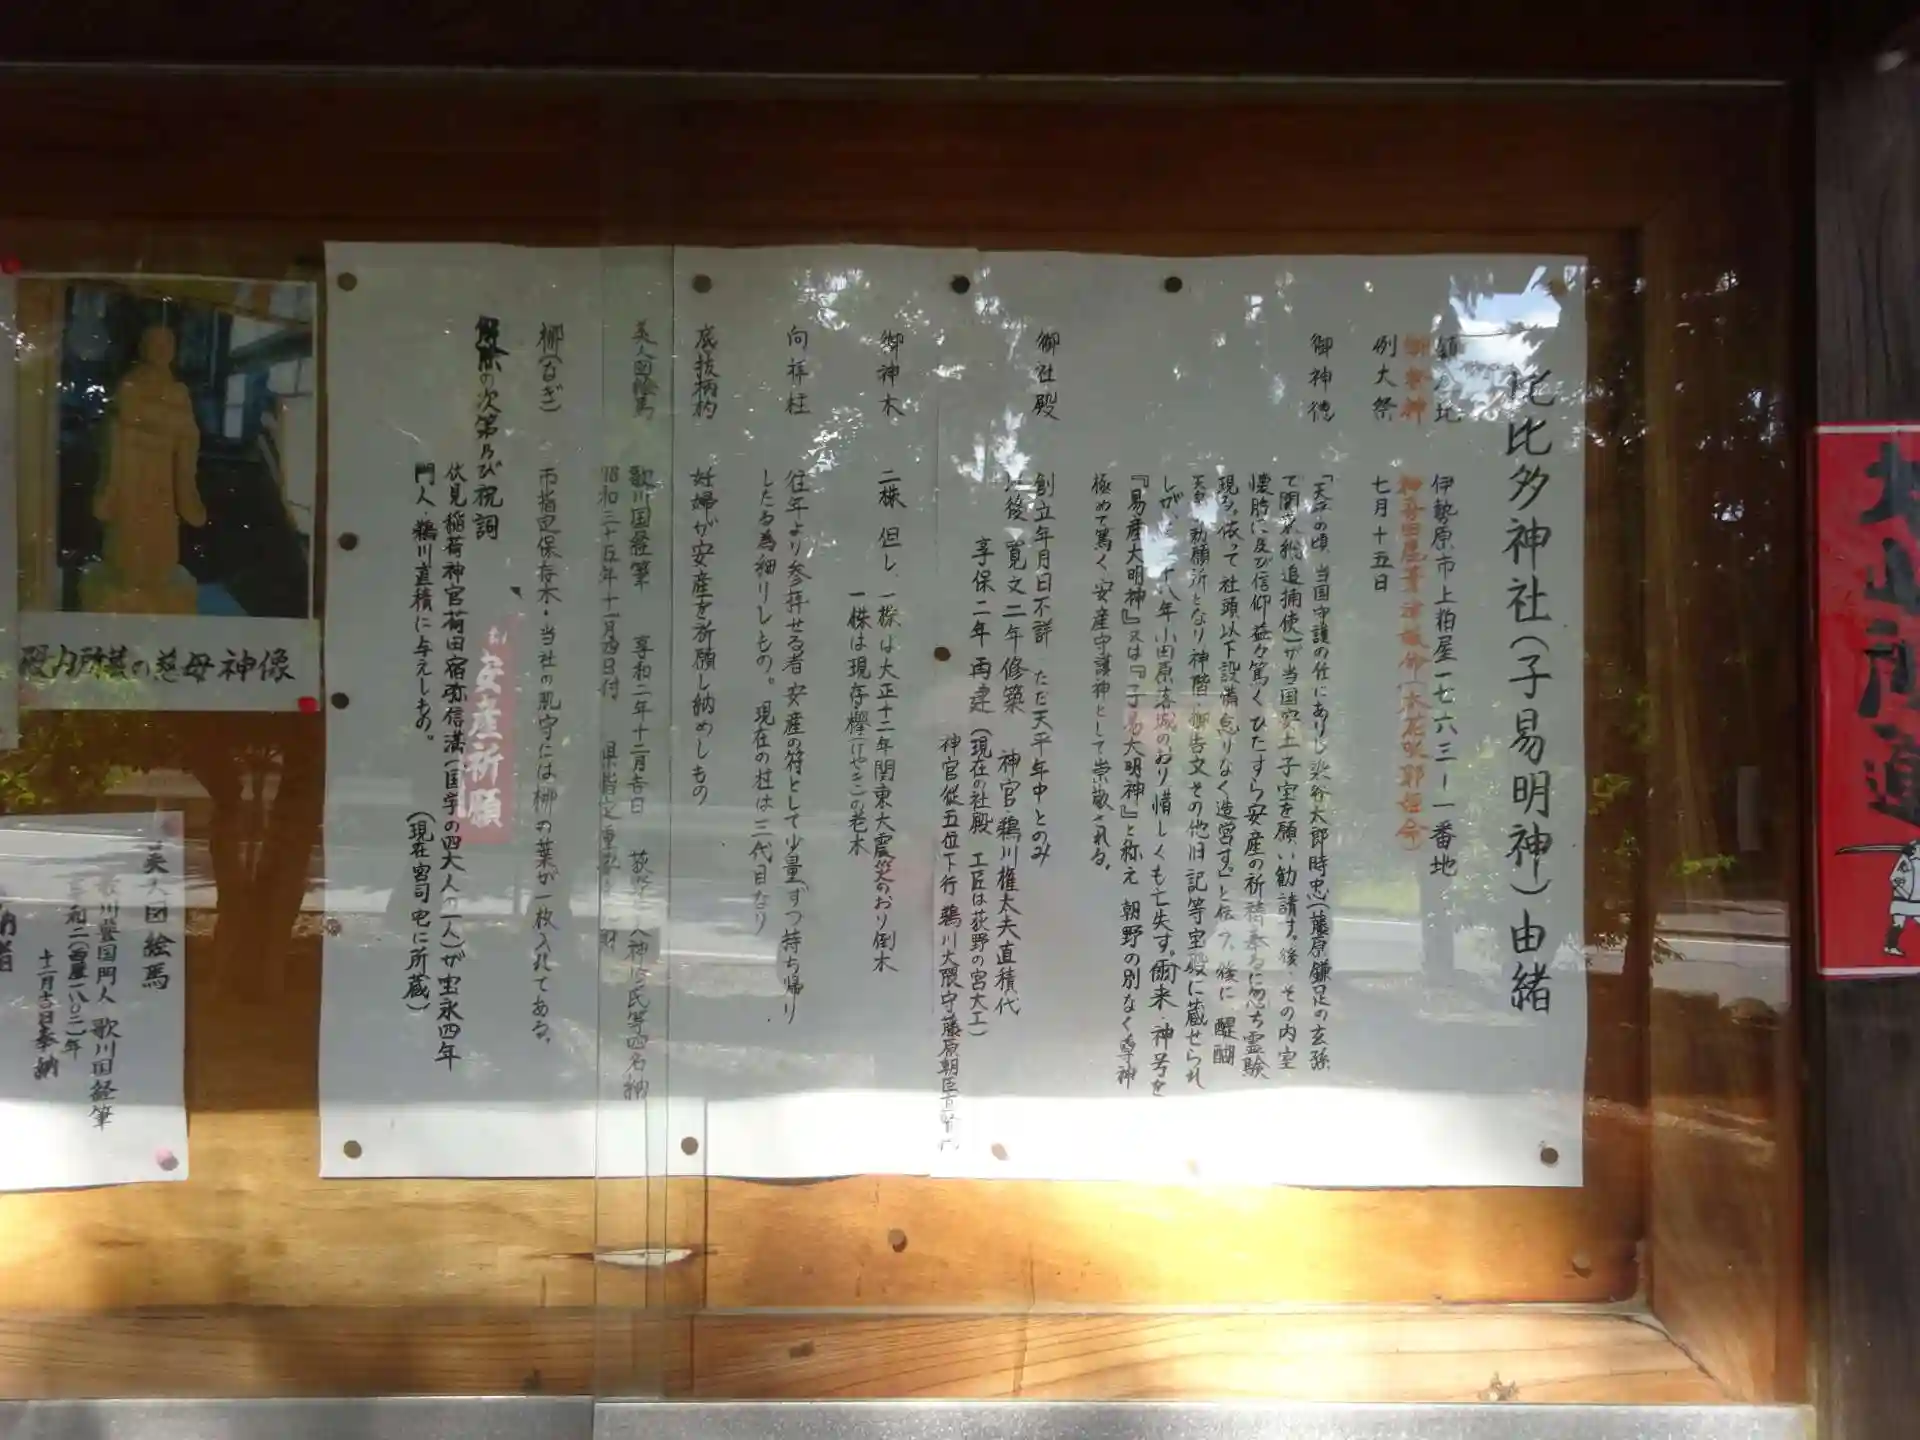 比比多神社(子易明神)由緒
鎮座地 伊勢原市上粕屋一七六三-一番地
御祭神 神吾田鹿葦津姫命(木花咲耶姫命)
例大祭 七月十五日
御神徳 「天平の頃、当国守護の任にありし染谷太郎時忠(藤原鎌足の玄孫
にて関東総追捕使)が当国安土子宝を願い勧請す。後、その内室
懐胎に及び信仰益々篤くひたすら安産の祈祷奉るに忽ち霊験
現る。依って社頭以下設備怠りなく造営す。」と伝う。後に醍醐
天皇勅願所となり神階・御告文その他旧記等宝殿に蔵せられ
しが、十八年小田原落城のおり惜しくも亡失す。爾来、神号を
『易産大明神』又は『子易大明神』と称え朝野の別なく尊神
極めて篤く安産守護神として崇敬される。
御社殿 創立年月日不詳 ただ天平年中とのみ
以後 寛文二年修築 神官鵜川権太夫直積代
享保二年再建(現在の社殿 工匠は荻野の宮大工)
神官従五位下行 鵜川大隈守藤原朝臣直
御神木 二株 但し、一株は大正十二年関東大震災のおり倒木
一株は現存欅(けやき)の老木
向拝柱 往年より参拝せる者安産の符として少量ずつ持ち帰り
したる為細りしもの。現在の柱は三代目なり
底抜柄杓 妊婦が安産を祈願し納めしもの
美人図絵馬 歌川国経筆 享和二年十二月吉日 荻 人神 氏等四名納
昭和三十五年十一月四日付 県指定重 財
梛(なぎ) 市指定保存木・当社の肌守には梛の葉が一枚入れてある。
解除の次第及び祝詞
伏見稲荷神宮荷田宿弥信満(国学の四大人の一人)が宝永四年
門人・鵜川直積に与えしもの。 (現在宮司宅に所蔵)
安産祈願
殿内所蔵の慈母神像
美人図絵馬
歌川豊国門人 歌川国経筆
享和二(西暦一八〇二)年
十二月吉日奉納